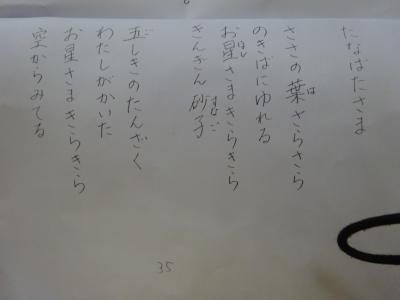 たなばたさま
ささの葉さらさら
のきばにゆれる
お星さまきらきら
きんぎん砂子
五しきのたんざく
わたしがかいた
お星さまきらきら
空からみてる
35